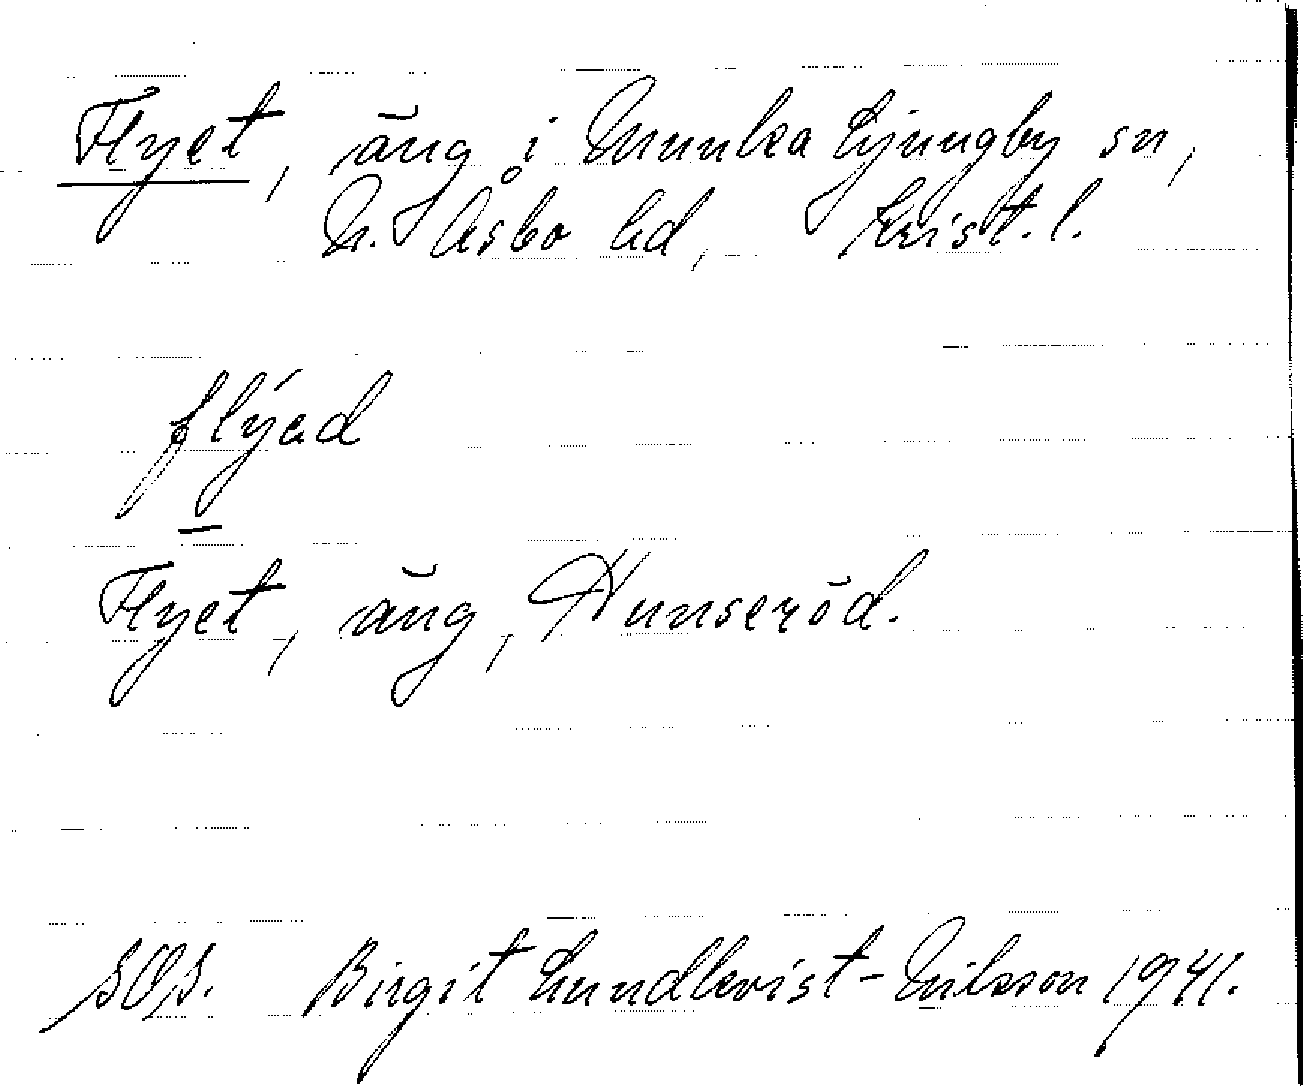 Flyet, äng i Munka Ljungby sn,
N. Åsbo hd, Krist. l.
flýad
Flyet, äng, Hunseröd.
SOS. Birgit Lundkvist-Nilsson 1941.